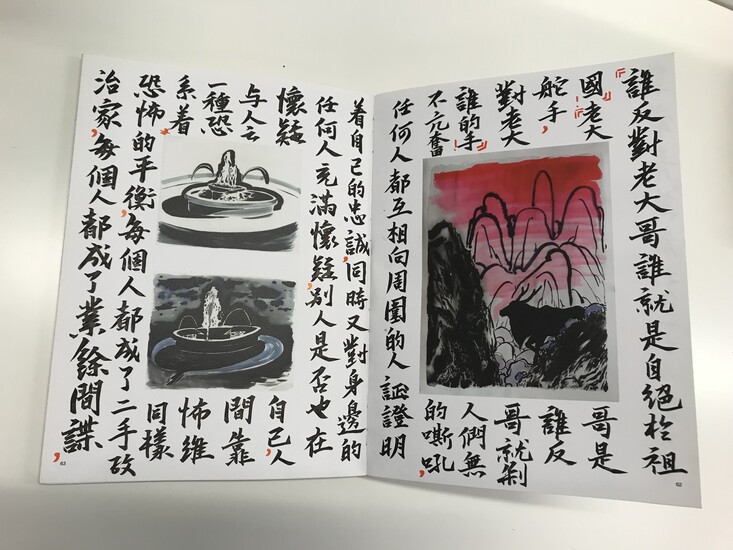 『誰反對老大哥誰就是自絕於祖
國!』『老大哥是
舵手,誰反
對老大哥就剁
誰的手!』人們無
不亢奮的嘶吼,
任何人都互相向周圍的人証證明
着自己的忠誠,同時又對身邊的
任何人充滿懷疑,別人是否也在
懷疑自己,人
与人之間靠
一種恐怖維
系着同樣
恐怖的平衡,每個人都成了二手政
治家,每個人都成了業餘間諜,
62
63